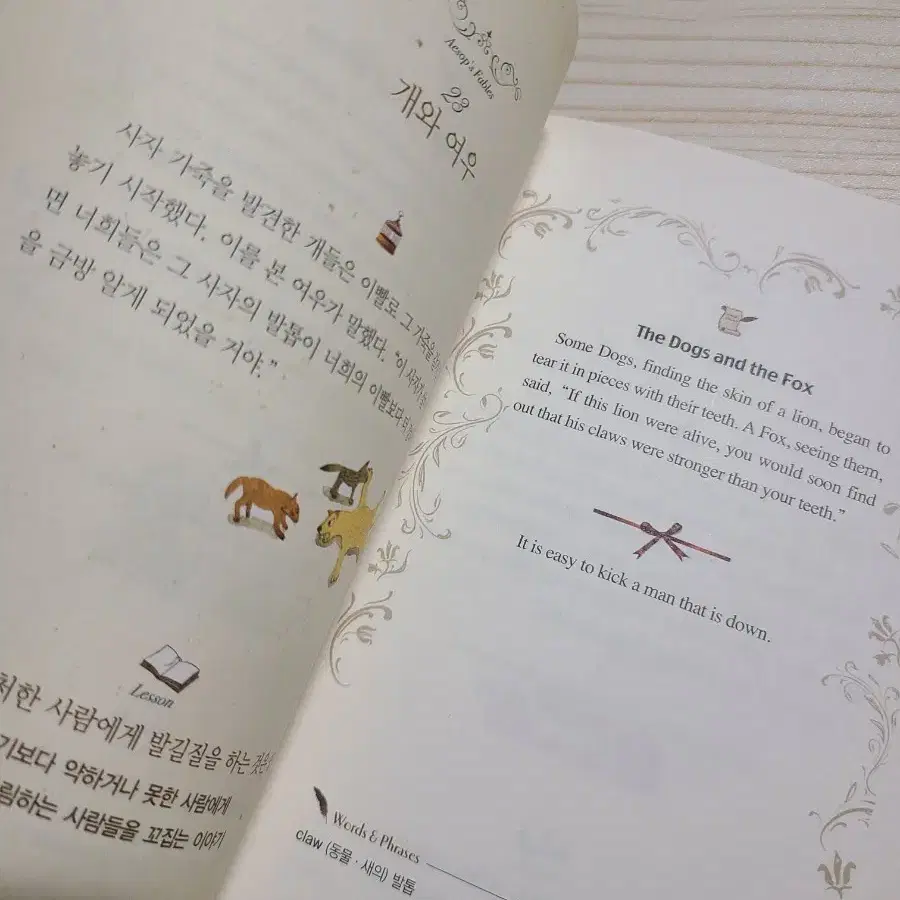 Aesop's Fables
23
개와 여우
사자 가죽을 발견한 개들은 이빨로 그 가죽을
놓기 시작했다. 이를 본 여우가 말했다. “이 사자가
면 너희들은 그 사자의 발톱이 너희의 이빨보다 더
을 금방 알게 되었을 거야.”
Lesson
처한 사람에게 발길질을 하는 것은
기보다 약하거나 못한 사람에게
림하는 사람들을 꼬집는 이야기
The Dogs and the Fox
Some Dogs, finding the skin of a lion, began to
tear it in pieces with their teeth. A Fox, seeing them,
said, “If this lion were alive, you would soon find
out that his claws were stronger than your teeth.”
It is easy to kick a man that is down.
Words & Phrases
claw (동물 · 새의) 발톱